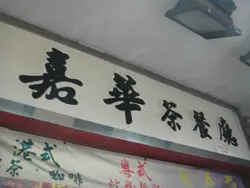 嘉華茶餐廳
港式 粵式
茶·咖啡